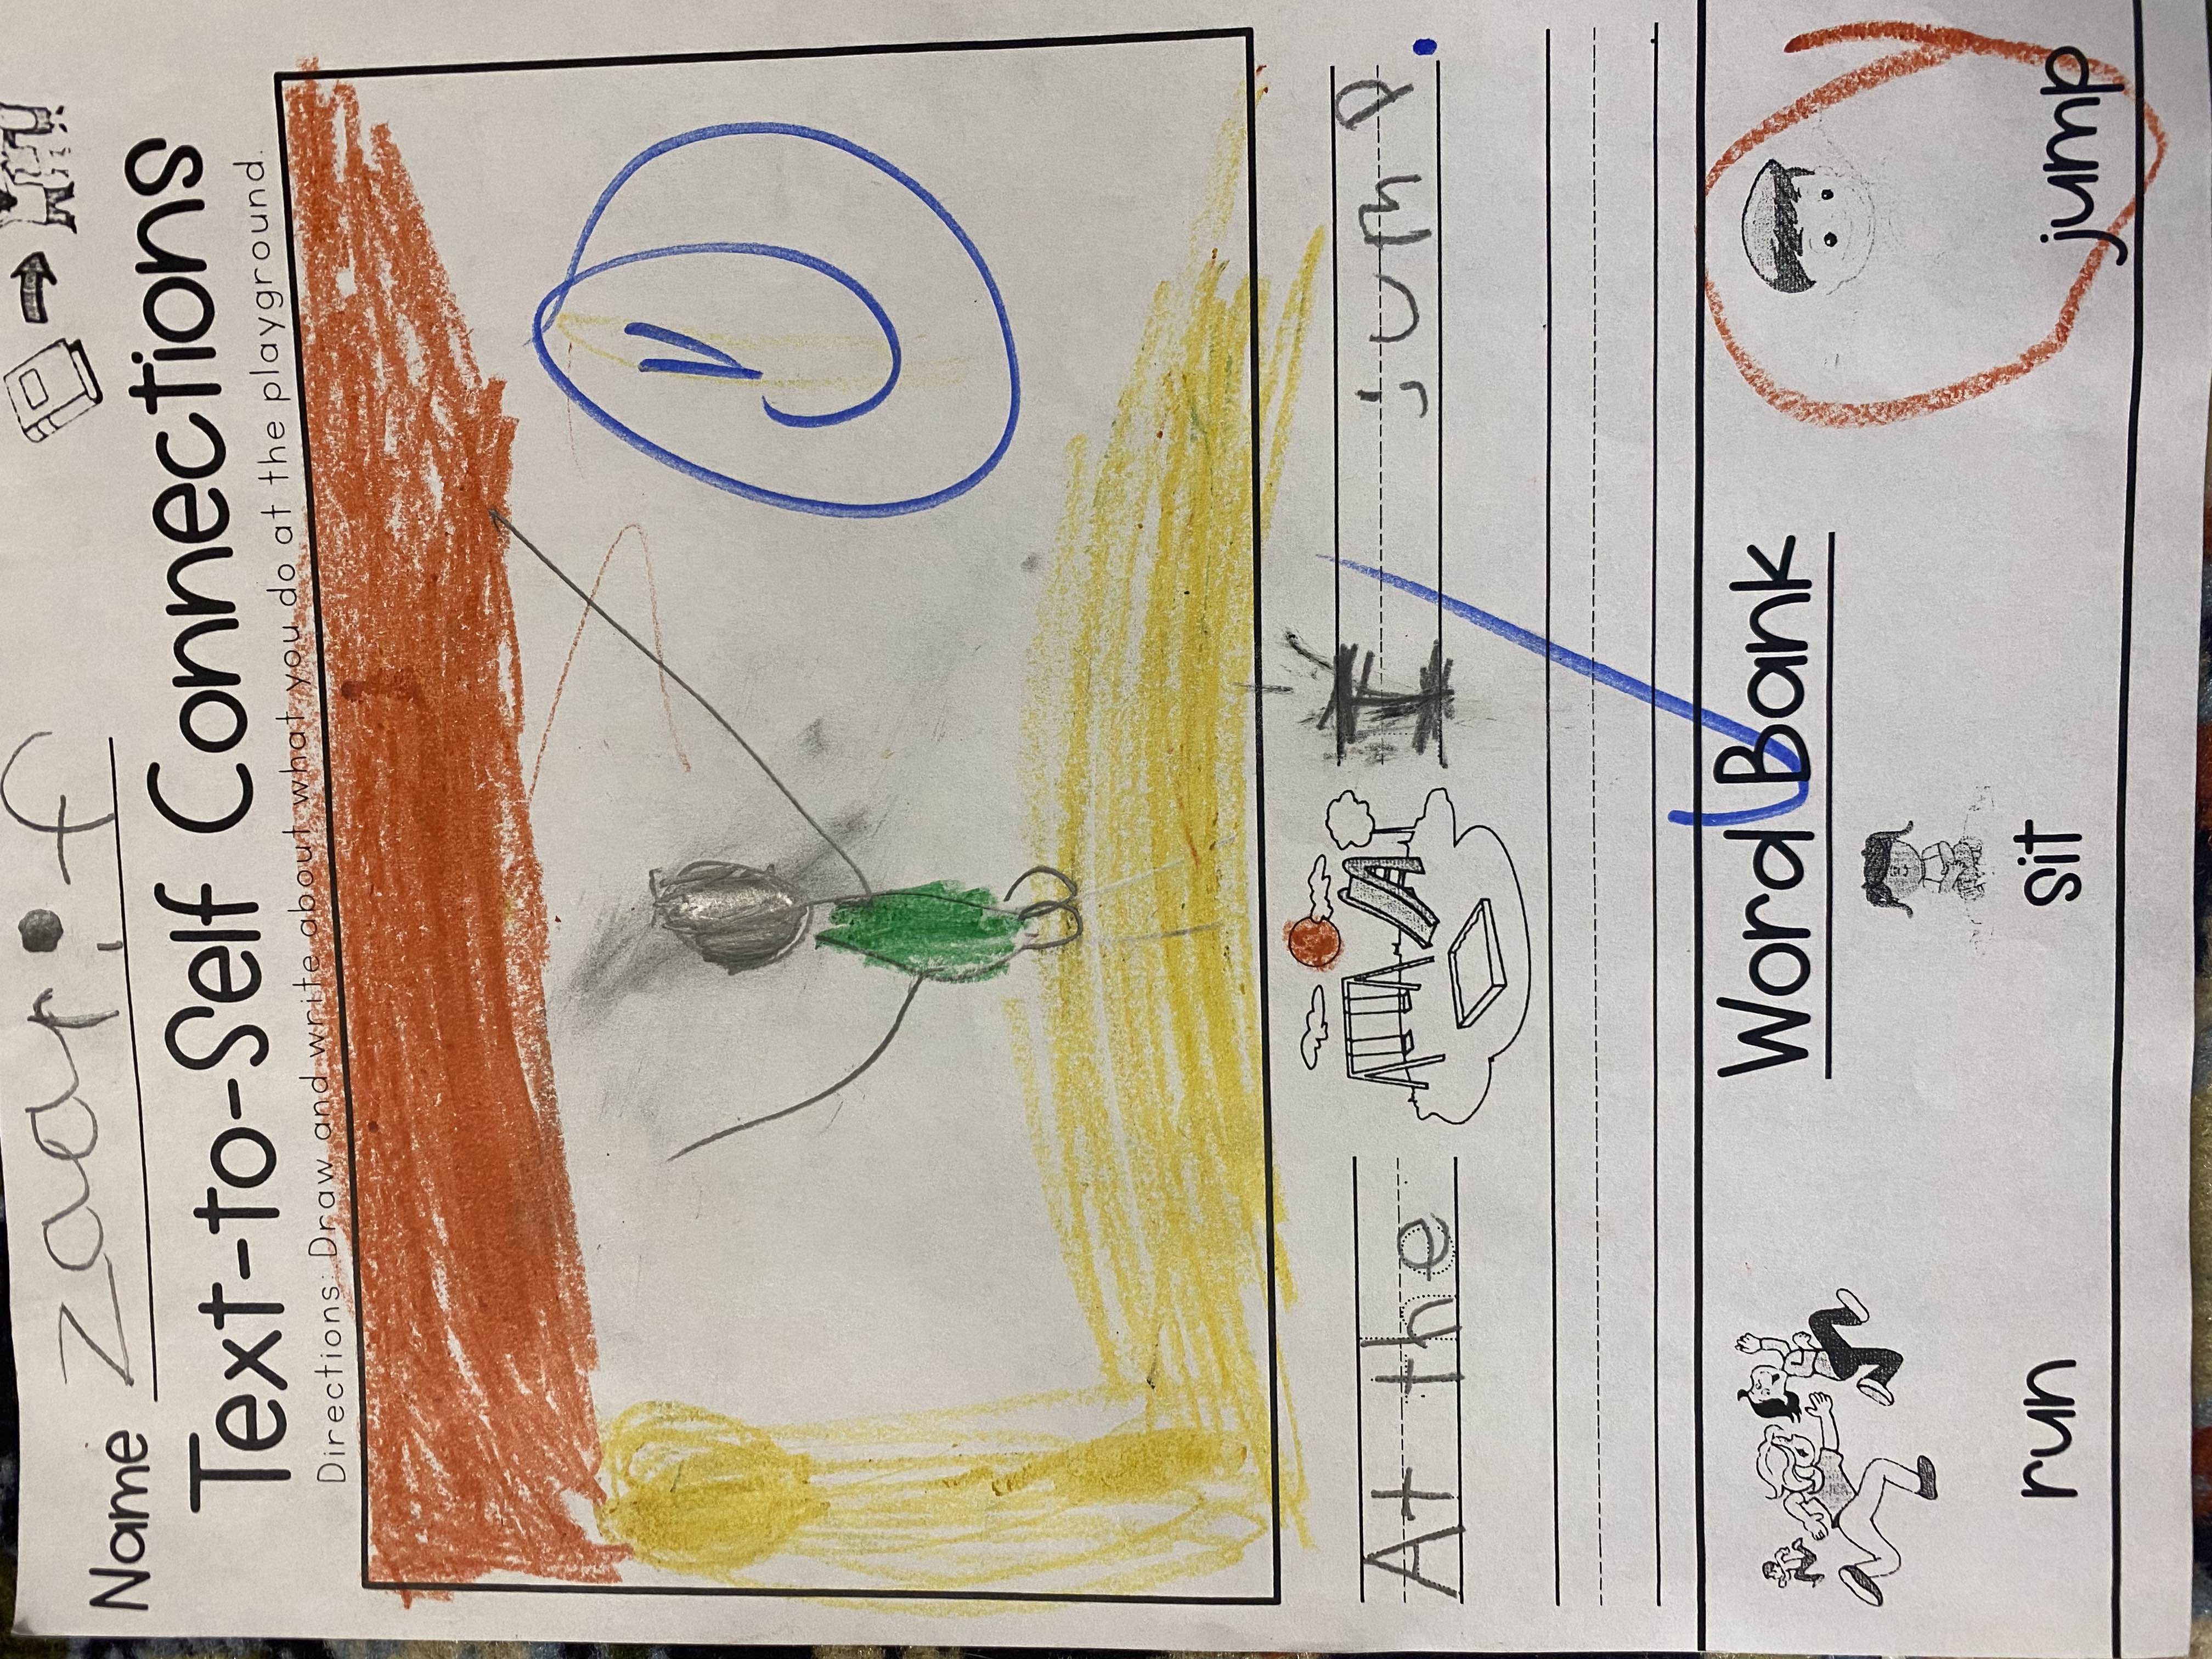 Name zaarif
Text-to-Self Connections
Directions: Draw and write about what you do at the playground.
At the I jump.
Word Bank
run sit jump